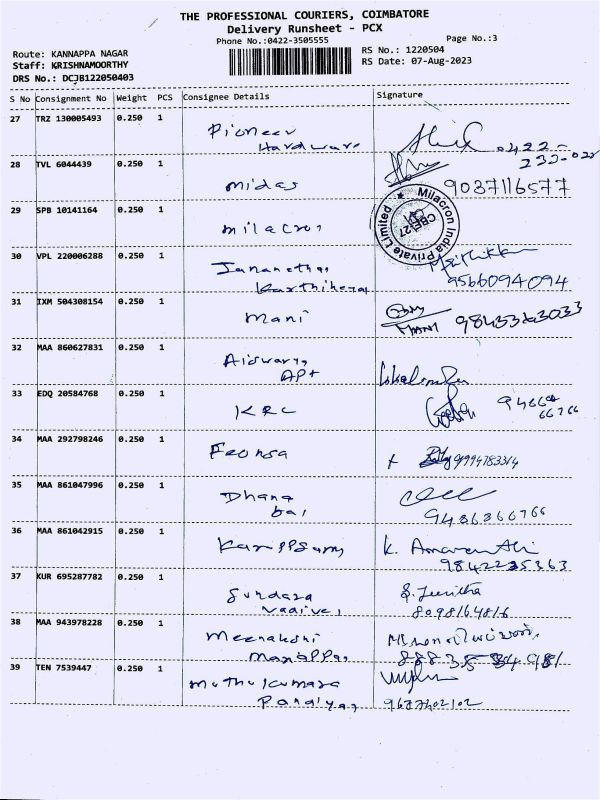 THE PROFESSIONAL COURIERS, COIMBATORE
Delivery Runsheet - PCX
Phone No.:0422-3505555
Page No.:3
Route: KANNAPPA NAGAR
RS No.: 1220504
Staff: KRISHNAMOORTHY
RS Date: 07-Aug-2023
DRS No.: DCJB122050403
S No Consignment No Weight PCS Consignee Details Signature
27 TRZ 130005493 0.250 1
Pioneer
Hardware
0422-
28 TVL 6044439 0.250 1
midas 9037116577
29 SPB 10141164 0.250 1
milacron
Milacron India Private Limited
CBE-27
30 VPL 220006288 0.250 1
Karthikeya 9566094094
31 IXM 504308154 0.250 1
mani
MANI
32 MAA 860627831 0.250 1
Aiswarya
APt
33 EDQ 20584768 0.250 1
KRC
34 MAA 292798246 0.250 1
Feonsa
35 MAA 861047996 0.250 1
Dhana
bai 9486366766
36 MAA 861042915 0.250 1
Karuppsamy K.
9842235363
37 KUR 695287782 0.250 1
Sundara
Vadivel 8098164816
38 MAA 943978228 0.250 1
Meenakshi
39 TEN 7539447 0.250 1
Muthukumara
Pandiyan 9677402102